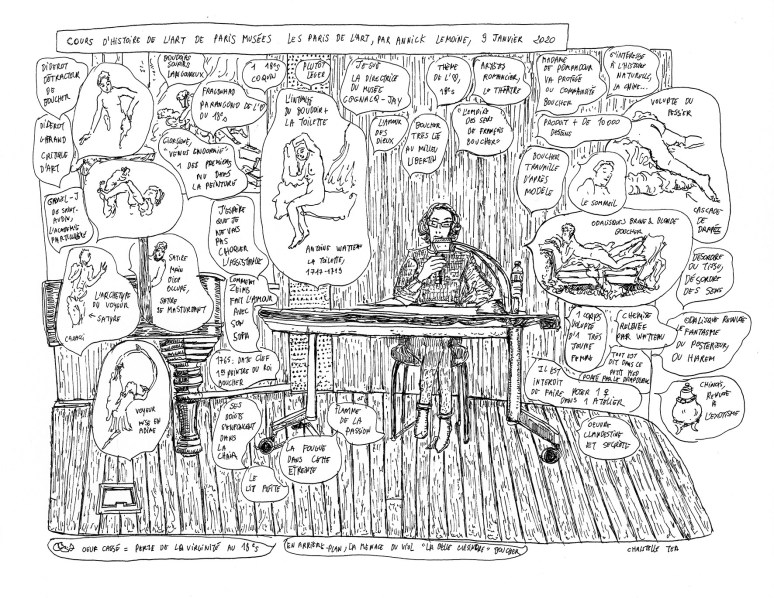 COURS D'HISTOIRE DE L'ART DE PARIS MUSÉES LES PARIS DE L'ART, PAR ANNICK LEMOINE, 9 JANVIER 2020
DIDEROT
DÉTRACTEUR
DE
BOUCHER
DIDEROT
GRAND
CRITIQUE
D'ART
GABRIEL-J
DE SAINT-
AUBIN,
L'ACADÉMIE
PARTICULIÈRE
L'ARCHETYPE
DU VOYEUR
SATYRE
SATIRE
MAIN
OCCUPÉ,
SATYRE
SE MASTURBANT
VOYEUR
MISE EN
ABIME
BOUDOIRS
SOUPIRS
LANGOUREUX
FRAGONARD
PARANGOND DE L'
DU 18ES
GIORGIONE,
VENUS ENDORMIE:
1 DES PREMIERS
NU DANS
LA PEINTURE
1 18ES
COQUIN
PLUTÔT
LÉGER
L'INTIMITÉ
DU BOUDOIR +
LA TOILETTE
ANTOINE WATTEAU
LA TOILETTE,
1717-1719
J'ESPÈRE
QUE JE
NE VAIS
PAS
CHOQUER
L'ASSISTANCE
COMMENT
ZEIMS
FAIT L'AMOUR
AVEC
SON
SOFA
1765: DATE CLEF
1ER PEINTRE DU ROI
BOUCHER
SES
DOIGTS
S'ENFONCENT
DANS
LA
CHAIR
LE
LIT PETITE
LA FOUGUE
DANS CETTE
ETREINTE
FLAMME
DE LA
PASSION
JE SUIS
LA DIRECTRICE
DU MUSÉE
COGNACQ-JAY
L'AMOUR
DES
DIEUX
THÈME
18ES
BOUCHER
TRÈS LIÉ
AU MILIEU
LIBERTIN
ARTISTES
ROMANCIERS,
LE THÉÂTRE
"L'EMPIRE
DES SENS
DE FRANÇOIS
BOUCHER"
MADAME
DE POMPADOUR
VA PROTÉGÉ
OU COMMANDITÉ
BOUCHER
S'INTÉRESSE
À L'HISTOIRE
NATURELLE,
LA CHINE...
PRODUIT + DE 10 000
DESSINS
VOLUPTÉ DU
PESSIER
BOUCHER
TRAVAILLE
D'APRÈS
MODÈLE
LE SOMMEIL
CASCADE
DE
DRAPÉE
ODALISQUES BRUNE & BLONDE
BOUCHER
DÉSORDRE
DU TISSU,
DÉSORDRE
DES SENS
1 CORPS
1 TRÈS
JEUNE
FEMME
CHEMISE
RELEVÉE
PAR WATTEAU
ODALISQUE RENVOIE
LE FANTASME
DU POSTERIEUR,
DU HAREM
TOUT EST
DIT DANS CE
PETIT PIED
IL EST
INTERDIT
DE FAIRE POSER 1 ♀
DANS 1 ATELIER
CHINOIS,
RENVOIE
À
L'EXOTISME
OEUVRE
CLANDESTINE
ET SECRÈTE
OEUF CASSÉ = PERTE DE LA VIRGINITÉ AU 18ES
EN ARRIÈRE-PLAN, LA MENACE DU VIOL "LA BELLE CUISINIÈRE" BOUCHER